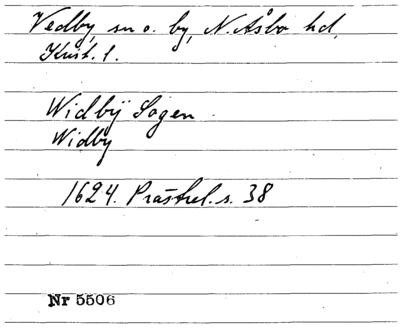 Vedby, sn o. by, N. Åsbo hd,
Krist. l.
Widbÿ Sogen
Widby
1624. Prästrel. s. 38
Nr 5506